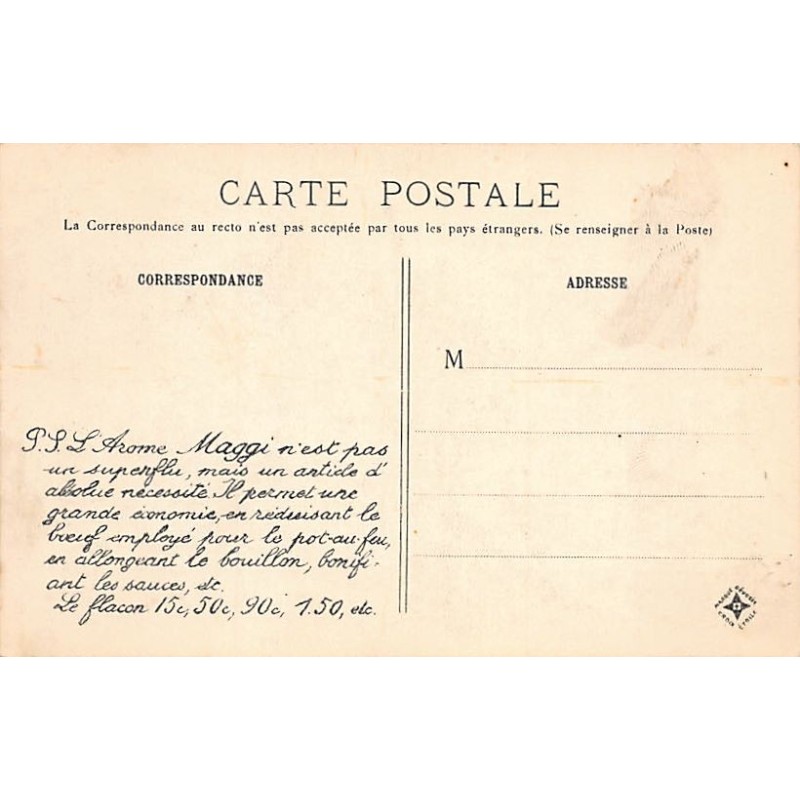 CARTE POSTALE
La Correspondance au recto n'est pas acceptée par tous les pays étrangers. (Se renseigner à la Poste)
CORRESPONDANCE
ADRESSE
M
P.S. L'Arome Maggi n'est pas
un superflu, mais un article d'
absolue nécessité. Il permet une
grande économie, en réduisant le
bœuf employé pour le pot-au-feu,
en allongeant le bouillon, bonifi-
ant les sauces, etc.
Le flacon 15c, 50c, 90c, 1.50, etc.
MARQUE DÉPOSÉE
CROIX ÉTOILE